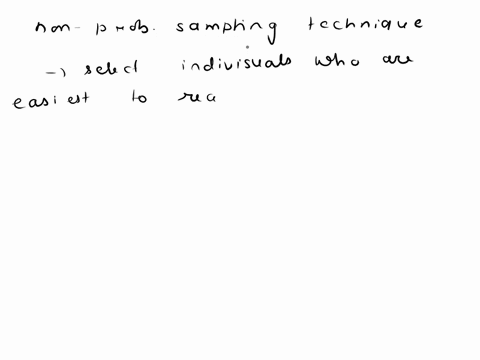 non-prob. sampling technique
→ select indivisuals who are
easiest to rea